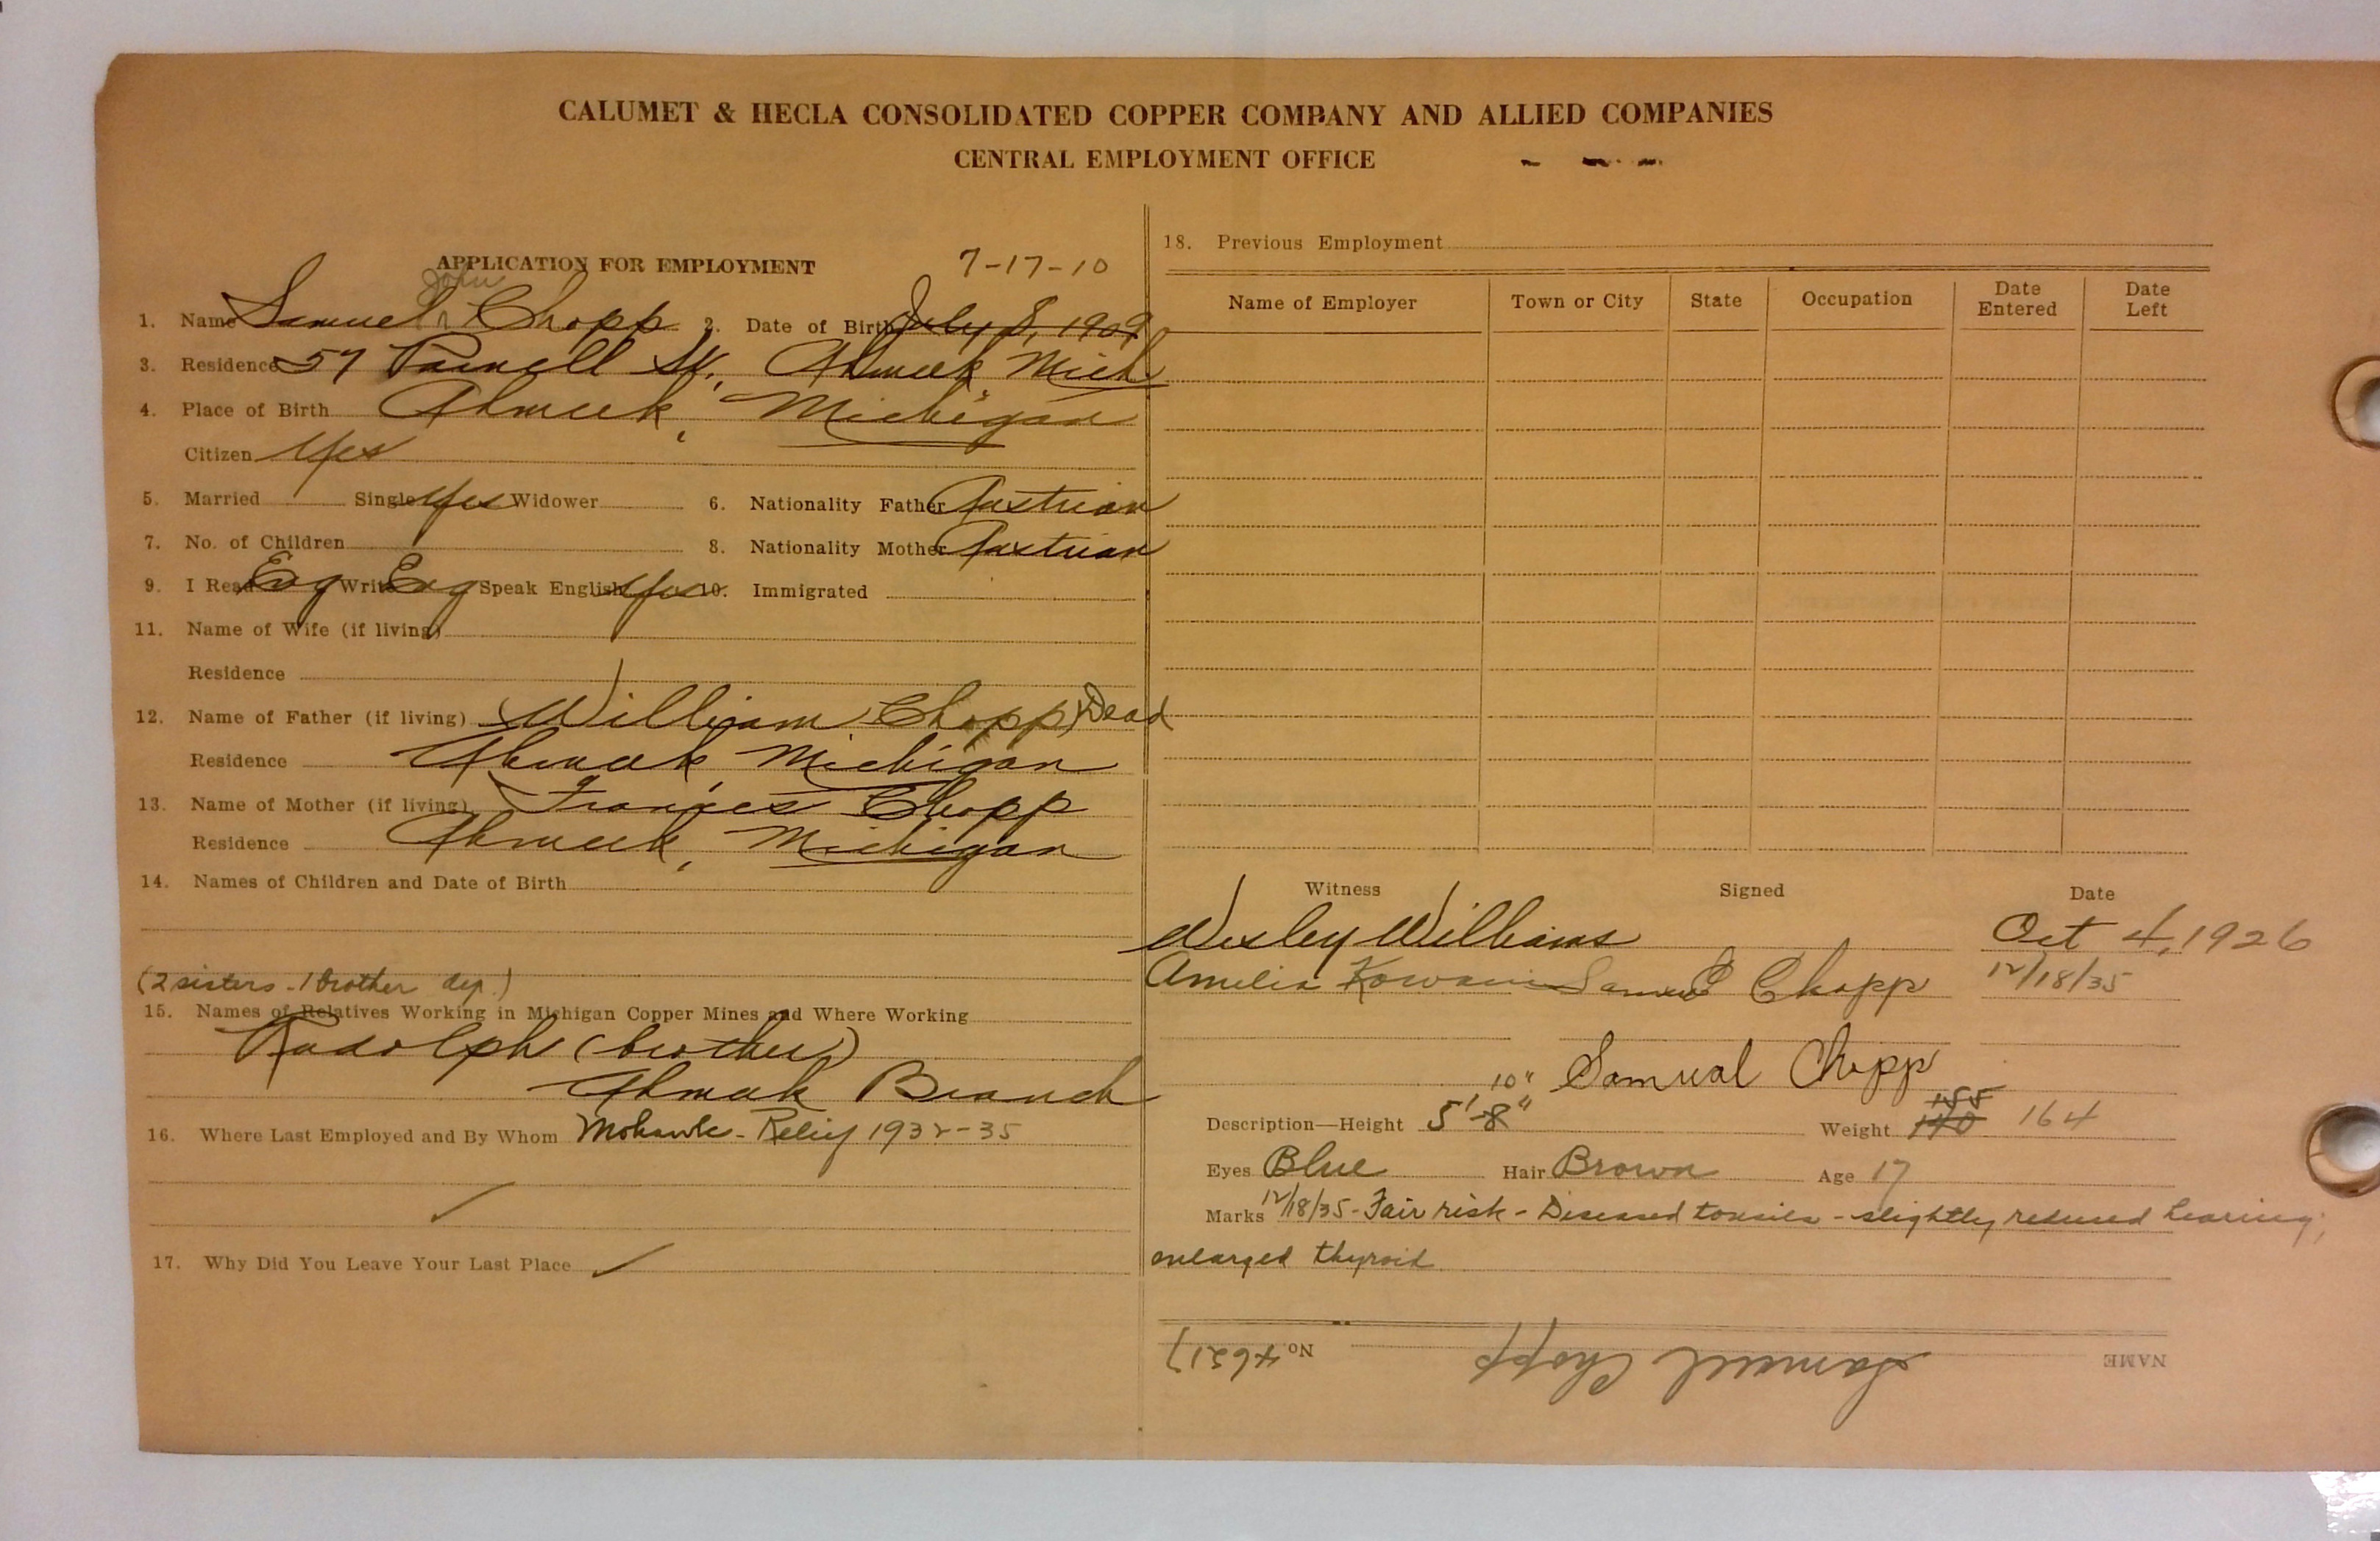 CALUMET & HECLA CONSOLIDATED COPPER COMPANY AND ALLIED COMPANIES
CENTRAL EMPLOYMENT OFFICE
APPLICATION FOR EMPLOYMENT 7-17-10
John
1. Name Samuel Chopp 2. Date of Birth July 8, 1909
3. Residence 57 St., Ahmeek, Mich
4. Place of Birth Ahmeek, Michigan
Citizen Yes
5. Married Single Yes Widower 6. Nationality Father Austrian
7. No. of Children 8. Nationality Mother Austrian
9. I Read Eng Write Eng Speak English Yes 10. Immigrated
11. Name of Wife (if living)
Residence
12. Name of Father (if living) William Chopp Dead
Residence Ahmeek, Michigan
13. Name of Mother (if living) Frances Chopp
Residence Ahmeek, Michigan
14. Names of Children and Date of Birth
(2 sisters - 1 brother dep.)
15. Names of Relatives Working in Michigan Copper Mines and Where Working
Rudolph (brother)
Ahmeek Branch
16. Where Last Employed and By Whom Mohawk - Relief 1932-35
17. Why Did You Leave Your Last Place
18. Previous Employment
Name of Employer Town or City State Occupation Date Entered Date Left
Witness Signed Date
Wesley Williams Oct 4, 1926
Amelia Samuel Chopp 12/18/35
Samual Chopp
10"
Description—Height 5'-8" Weight 140 155 164
Eyes Blue Hair Brown Age 17
Marks 12/18/35 - Fair risk - Diseased tonsils - slightly reduced hearing;
enlarged thyroid
NAME Samuel Chopp No. 46217